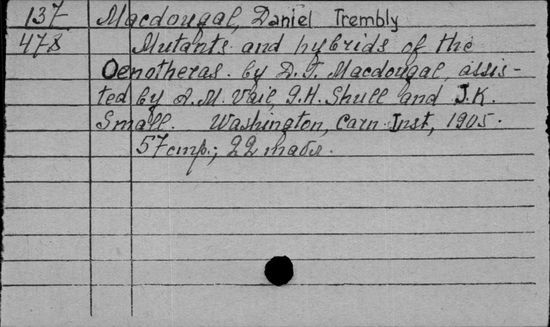 137 Macdougal, Daniel Trembly
478 Mutants and hybrids of the
Oenotheras. by D.T. Macdougal, assis-
ted by A.M. Vail, G.H. Shull and J.K.
Small. Washington, Carn. Inst, 1905.
57 стр.; 22 табл.